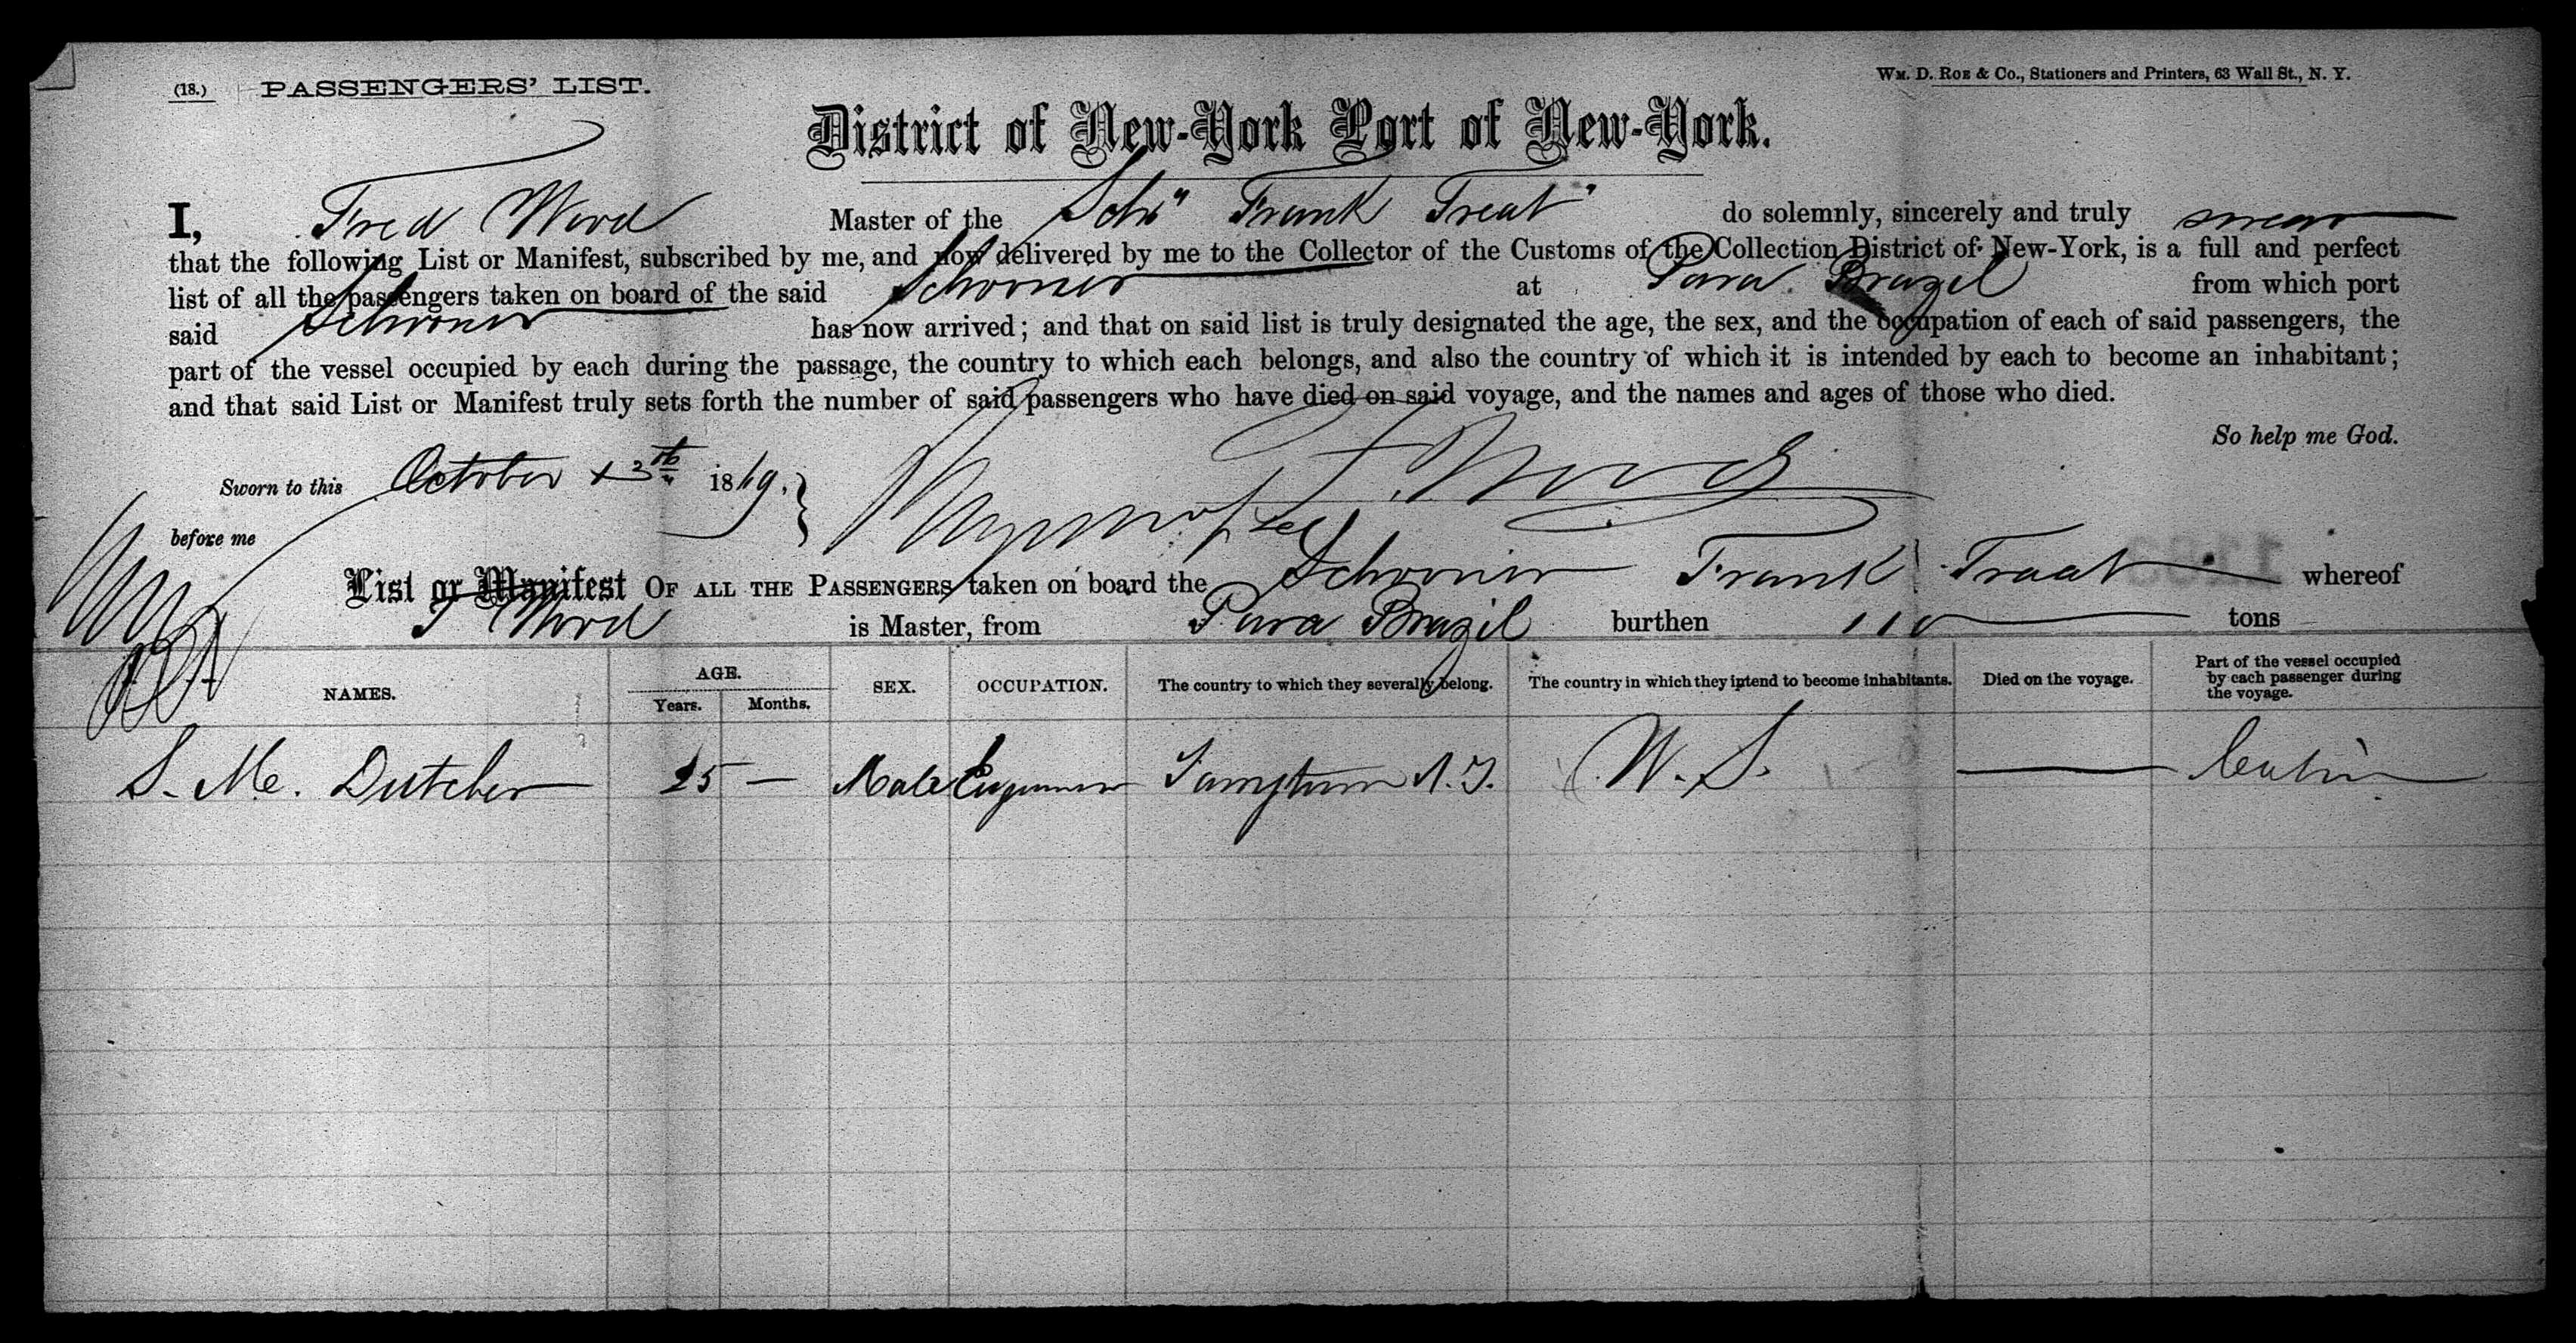 (18.) PASSENGERS' LIST. Wm. D. Roe & Co., Stationers and Printers, 63 Wall St., N. Y.
District of New-York Port of New-York.
I, Fred Wood Master of the Schr "Frank Treat" do solemnly, sincerely and truly swear
that the following List or Manifest, subscribed by me, and now delivered by me to the Collector of the Customs of the Collection District of New-York, is a full and perfect
list of all the passengers taken on board of the said Schooner at Para Brazil from which port
said Schooner has now arrived; and that on said list is truly designated the age, the sex, and the occupation of each of said passengers, the
part of the vessel occupied by each during the passage, the country to which each belongs, and also the country of which it is intended by each to become an inhabitant;
and that said List or Manifest truly sets forth the number of said passengers who have died on said voyage, and the names and ages of those who died.
So help me God.
Sworn to this October 1869. F. Wood
before me
List or Manifest OF ALL THE PASSENGERS taken on board the Schooner Frank Treat whereof
F Wood is Master, from Para Brazil burthen 110 tons
NAMES. AGE. Years. Months. SEX. OCCUPATION. The country to which they severally belong. The country in which they intend to become inhabitants. Died on the voyage. Part of the vessel occupied by each passenger during the voyage.
S. Mc. Dutcher 25 — Male Engineer — Cabin